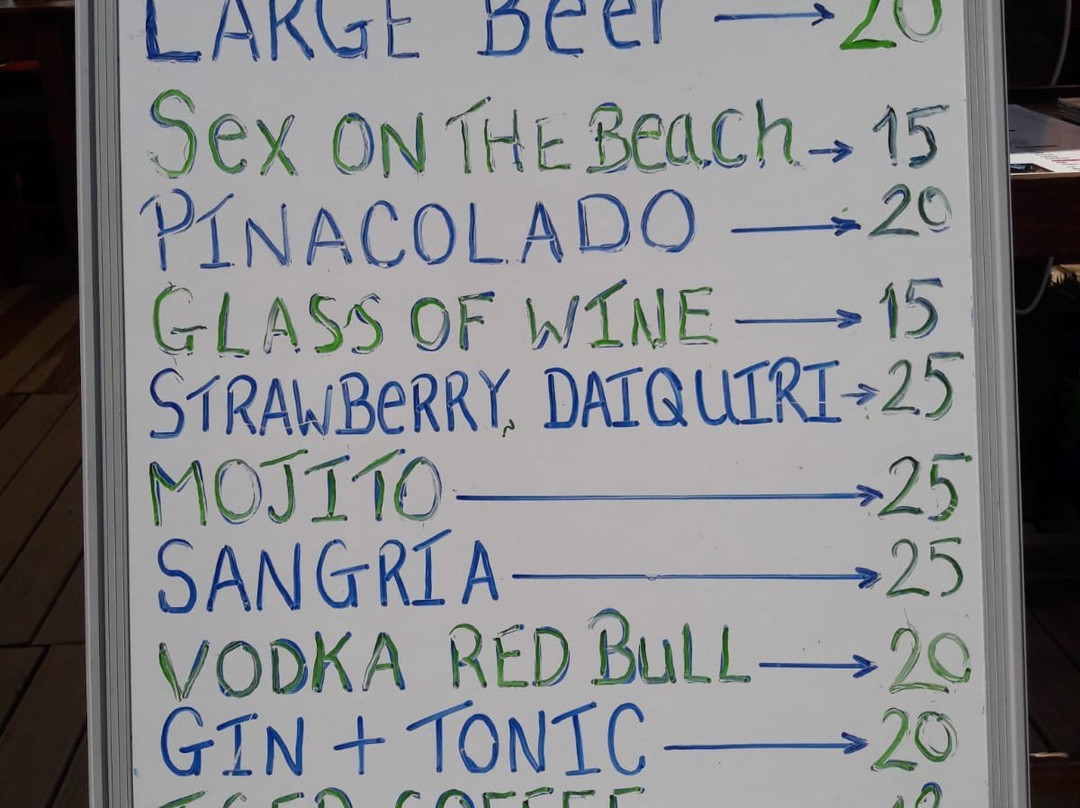 LARGE Beer → 20
Sex ON THE Beach → 15
PINACOLADO → 20
GLASS OF WINE → 15
STRAWBeRRY, DAIQUIRI → 25
MOJITO → 25
SANGRIA → 25
VODKA RED BULL → 20
GIN + TONIC → 20
ICED COFFEE